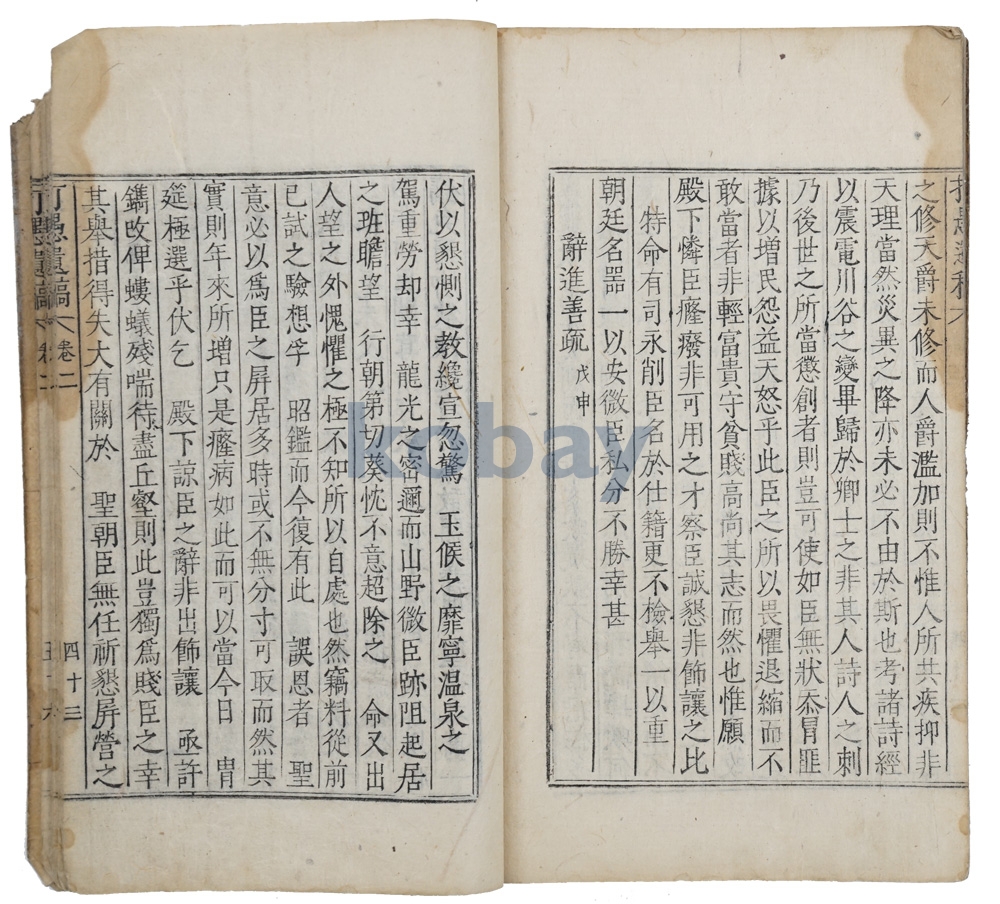 之修天爵未修而人爵濫加則不惟人所共疾抑非
天理當然災異之降亦未必不由於斯也考諸詩經
以震電川谷之變畢歸於卿士之非其人詩人之刺
乃後世之所當懲創者則豈可使如臣無狀忝冒匪
據以增民怨益天怒乎此臣之所以畏懼退縮而不
敢當者非輕富貴守貧賤高尚其志而然也惟願
殿下憐臣癃癈非可用之才察臣誠懇非飾讓之比
特命有司永削臣名於仕籍更不檢舉一以重
朝廷名器一以安微臣私分不勝幸甚
辭進善疏 戊申
伏以懇惻之教纔宣忽驚 玉候之靡寧溫泉之
駕重勞却幸 龍光之密邇而山野微臣跡阻起居
之班瞻望 行朝第切葵忱不意超除之 命又出
人望之外愧懼之極不知所以自處也然竊料從前
已試之驗想孚 昭鑑而今復有此 誤恩者 聖
意必以爲臣之屏居多時或不無分寸可取而然其
實則年來所增只是癃病如此而可以當今日 胄
筵極選乎伏乞 殿下諒臣之辭非出飾讓 亟許
鐫改俾螻蟻殘喘待盡丘壑則此豈獨爲賤臣之幸
其舉措得失大有關於 聖朝臣無任祈懇屏營之
愚遺稿 卷二 四十三
kobay